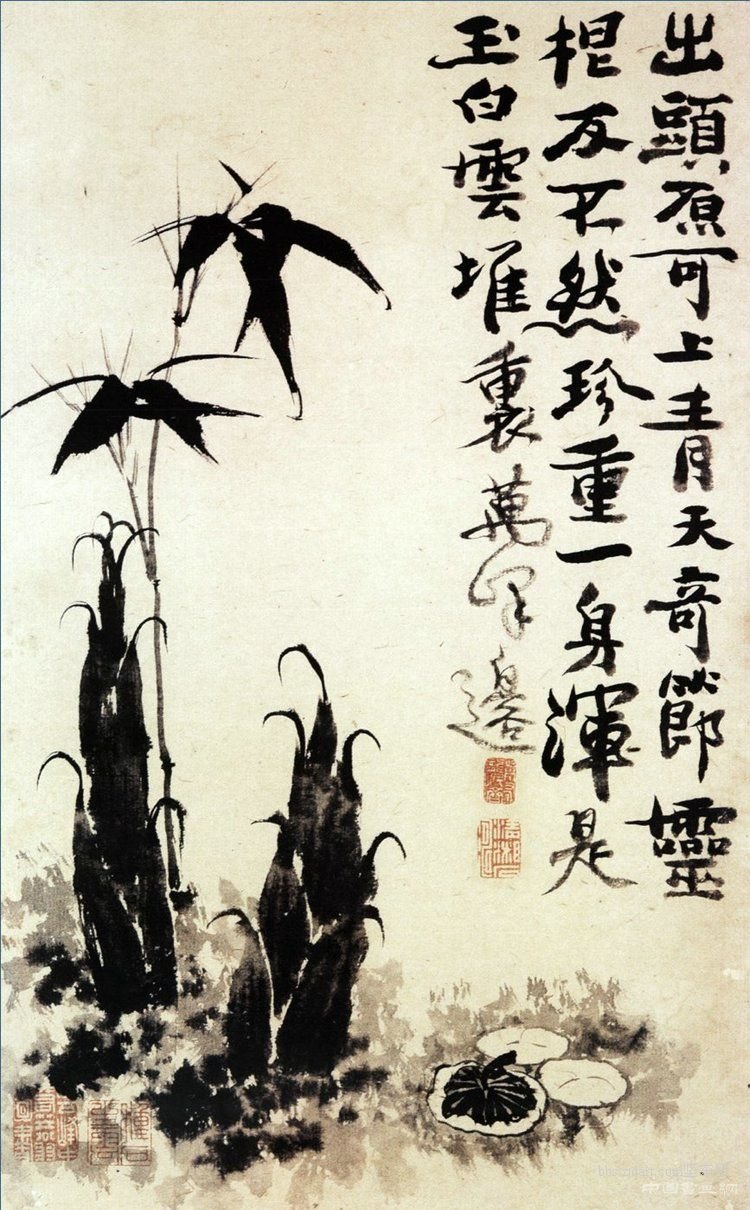 出頭原可上青天奇節靈
根反不然珍重一身渾是
玉白雲堆裏萬峰邊
中国书画网